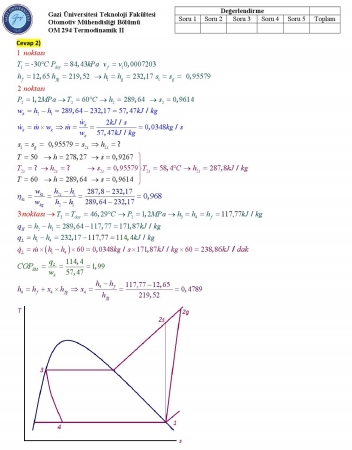 Gazi Üniversitesi Teknoloji Fakültesi
Otomotiv Mühendisliği Bölümü
OM 294 Termodinamik II
Değerlendirme
Soru 1 Soru 2 Soru 3 Soru 4 Soru 5 Toplam
Cevap 2)
1 noktası
T₁ = -30°C P_doy = 84,43kPa v_f = v₁ 0,0007203
h_f = 12,65 h_fg = 219,52 → h₁ = h_g = 232,17 s₁ = s_g = 0,95579
2 noktası
P₂ = 1,2MPa → T₂ = 60°C → h₂ = 289,64 → s₂ = 0,9614
w_g = h₂ - h₁ = 289,64 - 232,17 = 57,47kJ / kg
ẇ_g = ṁ × w_g ⇒ ṁ = ẇ_g / w_g = 2kJ / s / 57,47kJ / kg = 0,0348kg / s
s₁ = s_g = 0,95579 = s₂s ⇒ h₂s = ?
T = 50 → h = 278,27 → s = 0,9267
T₂s = ? → h₂s = ? → s₂s = 0,95579 T₂s = 58,4°C → h₂s = 287,8kJ / kg
T = 60 → h = 289,64 → s = 0,9614
= h₂s - h₁ / h₂ - h₁ = 287,8 - 232,17 / 289,64 - 232,17 = 0,968
3 noktası → T₃ = T_doy = 46,29°C → P₃ = 1,2MPa → h₃ = h₄ = h_f = 117,77kJ / kg
q_H = h₂ - h₃ = 289,64 - 117,77 = 171,87kJ / kg
q_L = h₁ - h₄ = 232,17 - 117,77 = 114,4kJ / kg
= ṁ × (h₁ - h₄) × 60 = 0,0348kg / s × 171,87kJ / kg × 60 = 238,86kJ / dak
= 114,4 / 57,47 = 1,99
h₄ = h_f + x₄ × h_fg ⇒ x₄ = h₄ - h_f / h_fg = 117,77 - 12,65 / 219,52 = 0,4789
T
2s
2g
3
4
1
s